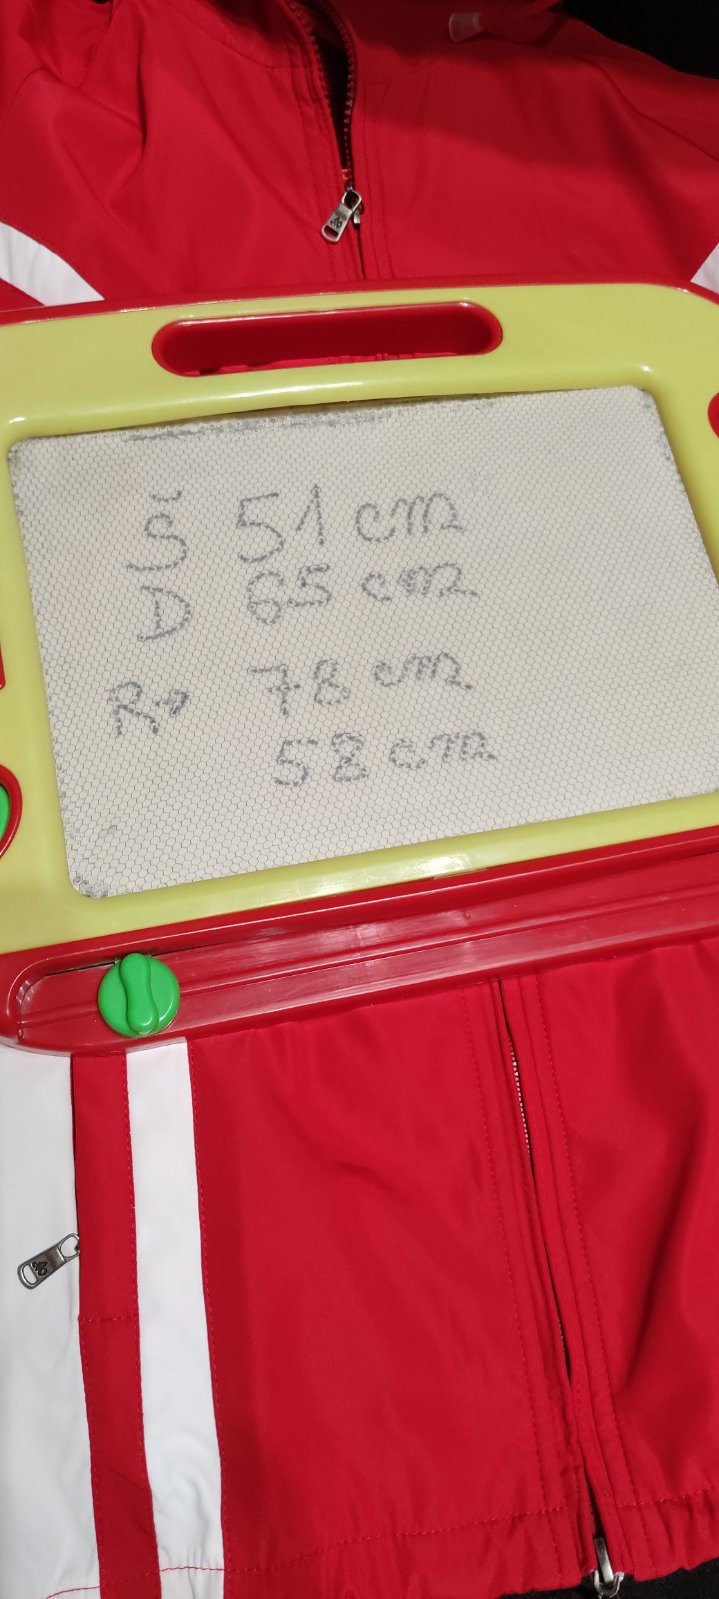 Š 51 cm
D 65 cm
R→ 78 cm
58 cm